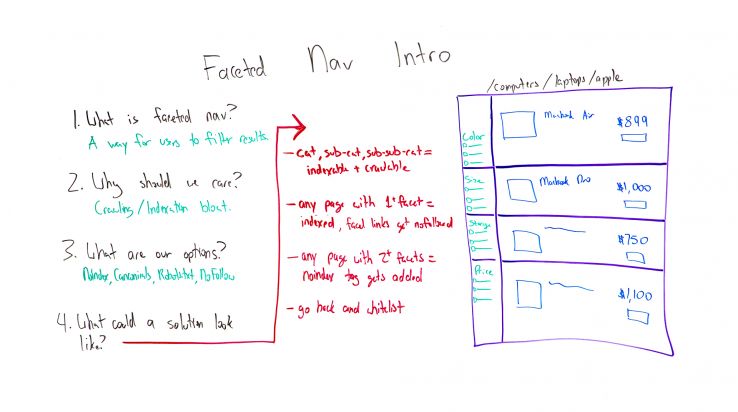 Faceted Nav Intro
1. What is faceted nav?
A way for users to filter results.
2. Why should we care?
Crawling/Indexation bloat.
3. What are our options?
Noindex, Canonicals, Robots.txt, Nofollow
4. What could a solution look
like?
- cat, sub-cat, sub-sub-cat =
indexable + crawlable
- any page with 1+ facet =
indexed, facet links get nofollowed
- any page with 2+ facets =
noindex tag gets added
- go back and whitelist
/computers/laptops/apple
Color
Macbook Air
$899
Size
Macbook Pro
$1,000
Storage
$750
Price
$1,100